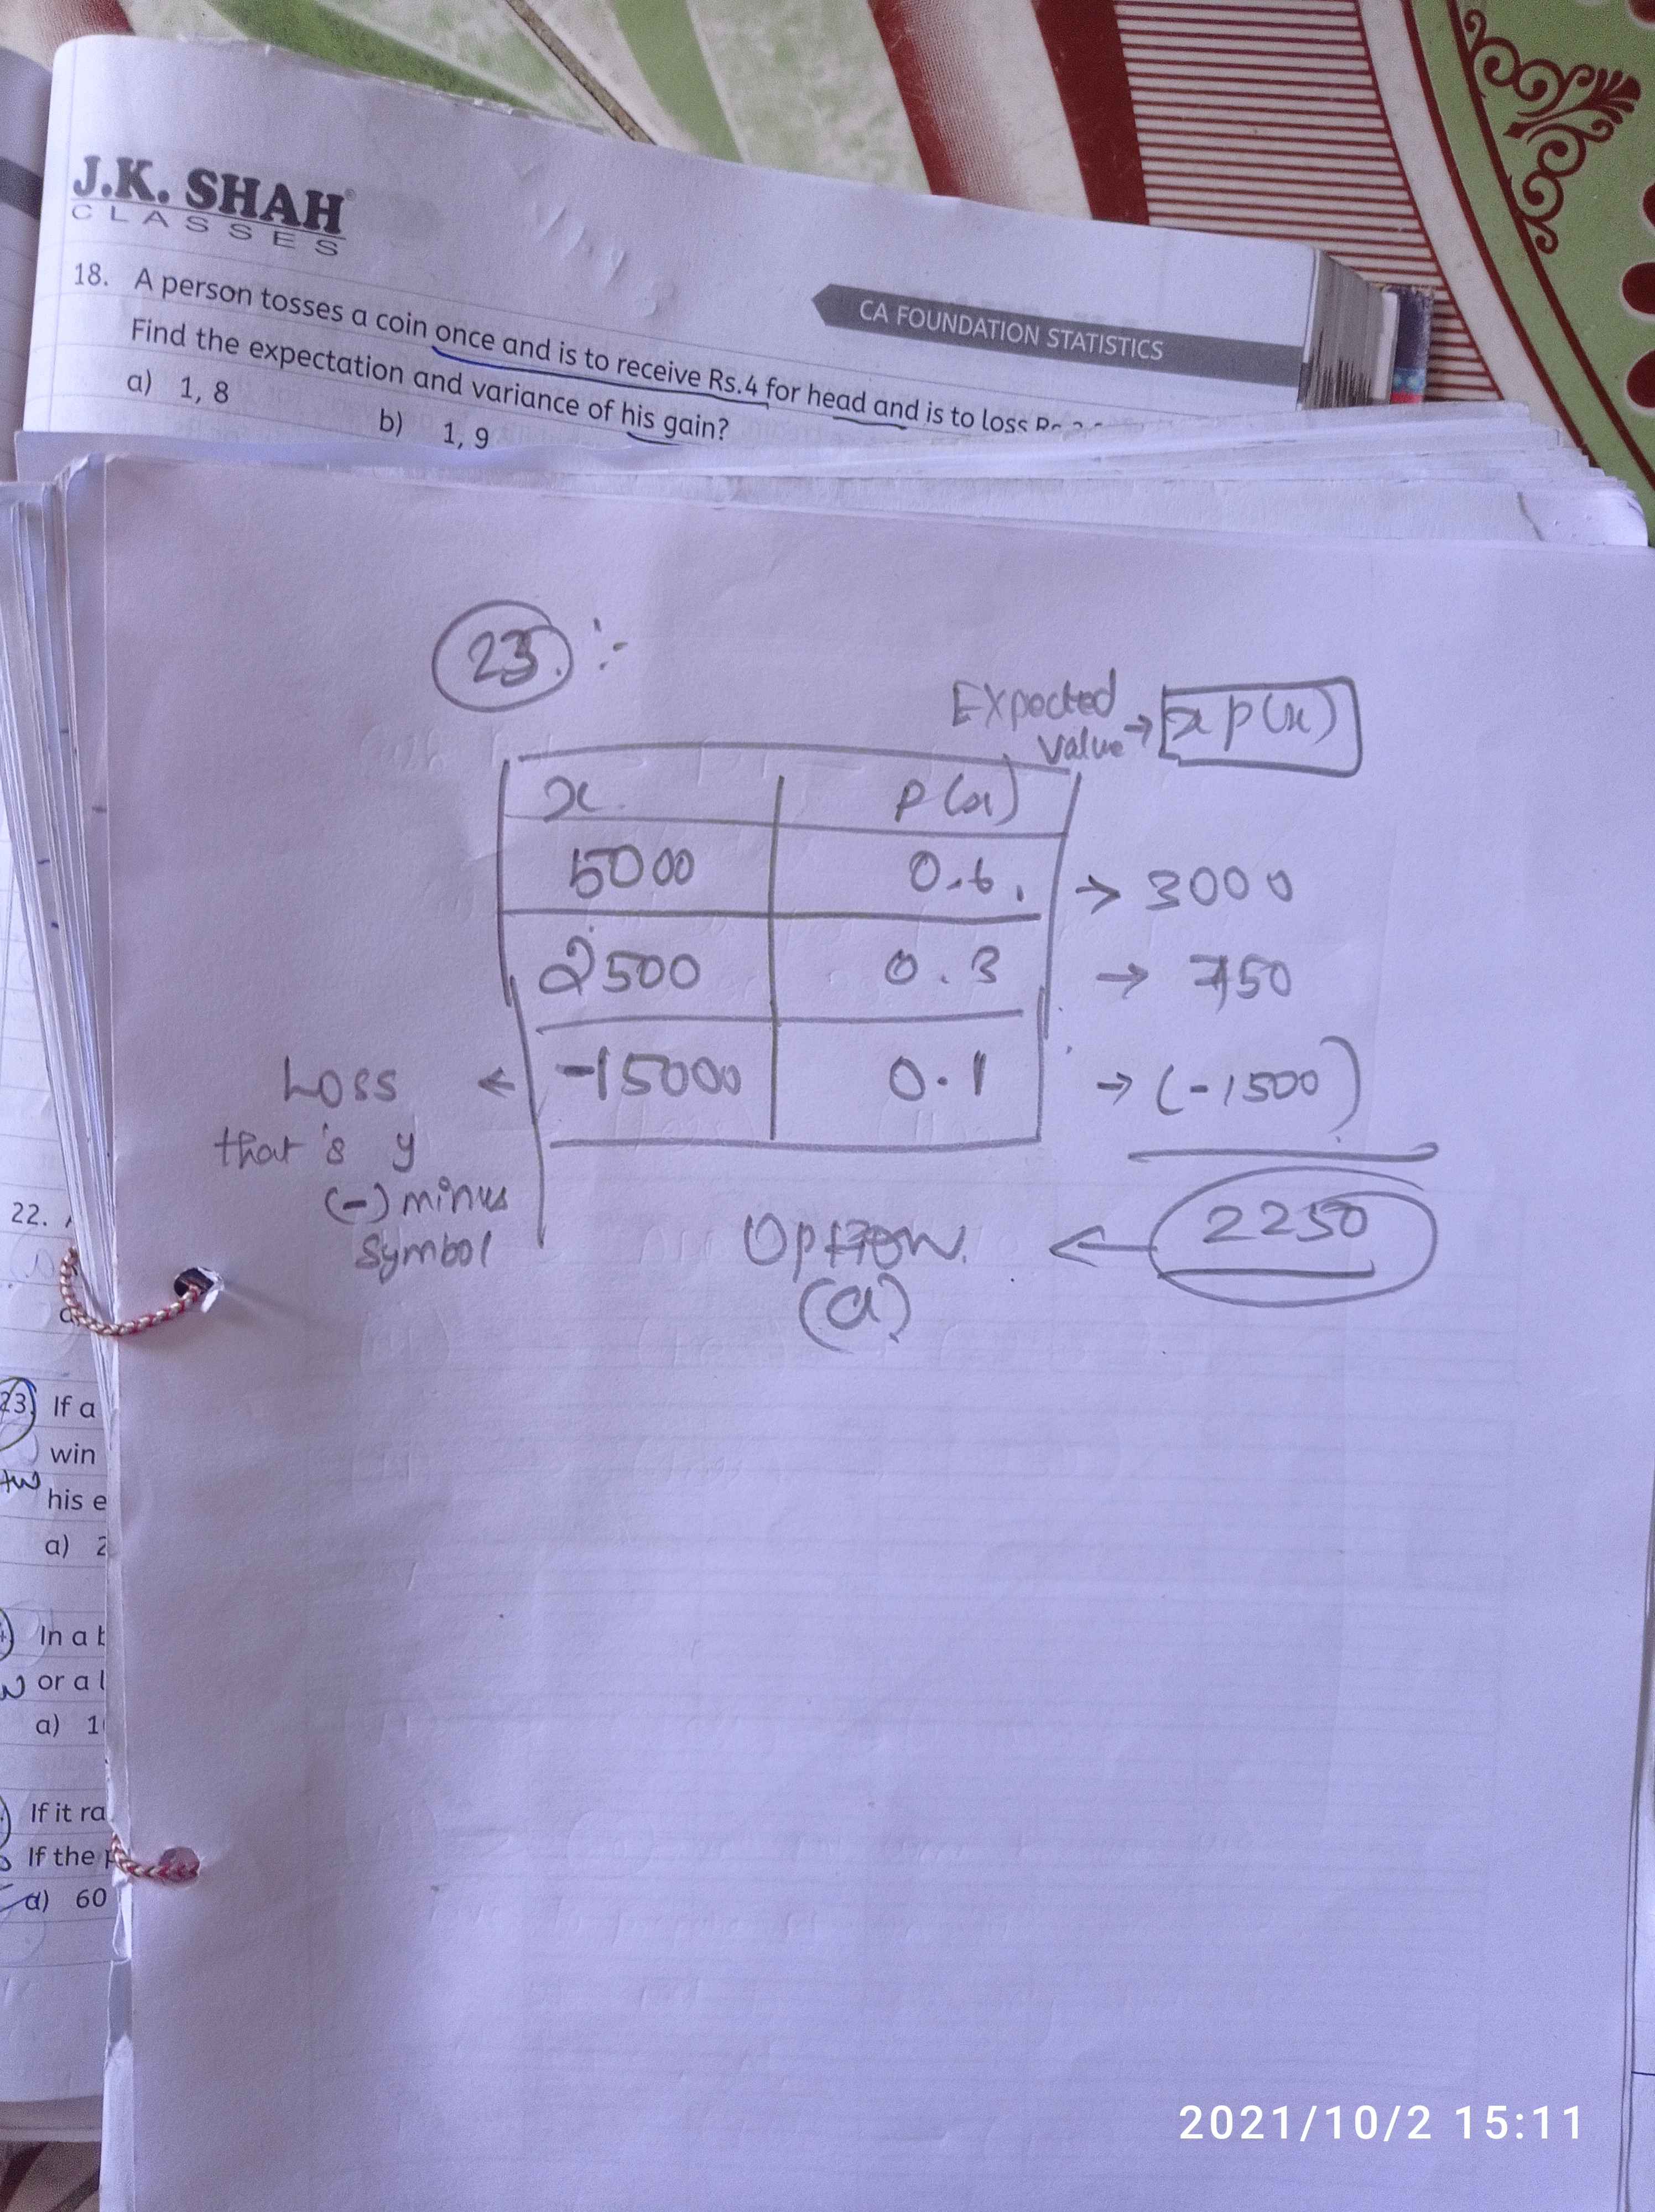 J.K. SHAH®
CLASSES
CA FOUNDATION STATISTICS
18. A person tosses a coin once and is to receive Rs.4 for head and is to loss
Find the expectation and variance of his gain?
a) 1, 8
b) 1, 9
23. :-
Expected value → x p(x)
x p(x)
5000 0.6. → 3000
2500 0.3 → 750
Loss ← -15000 0.1 → (-1500)
that's y
(-) minus
symbol
Option ← 2250
(a)
22.
23) If a
win
his e
a) 2
In a
or a l
a) 1
If it ra
If the
a) 60
2021/10/2 15:11